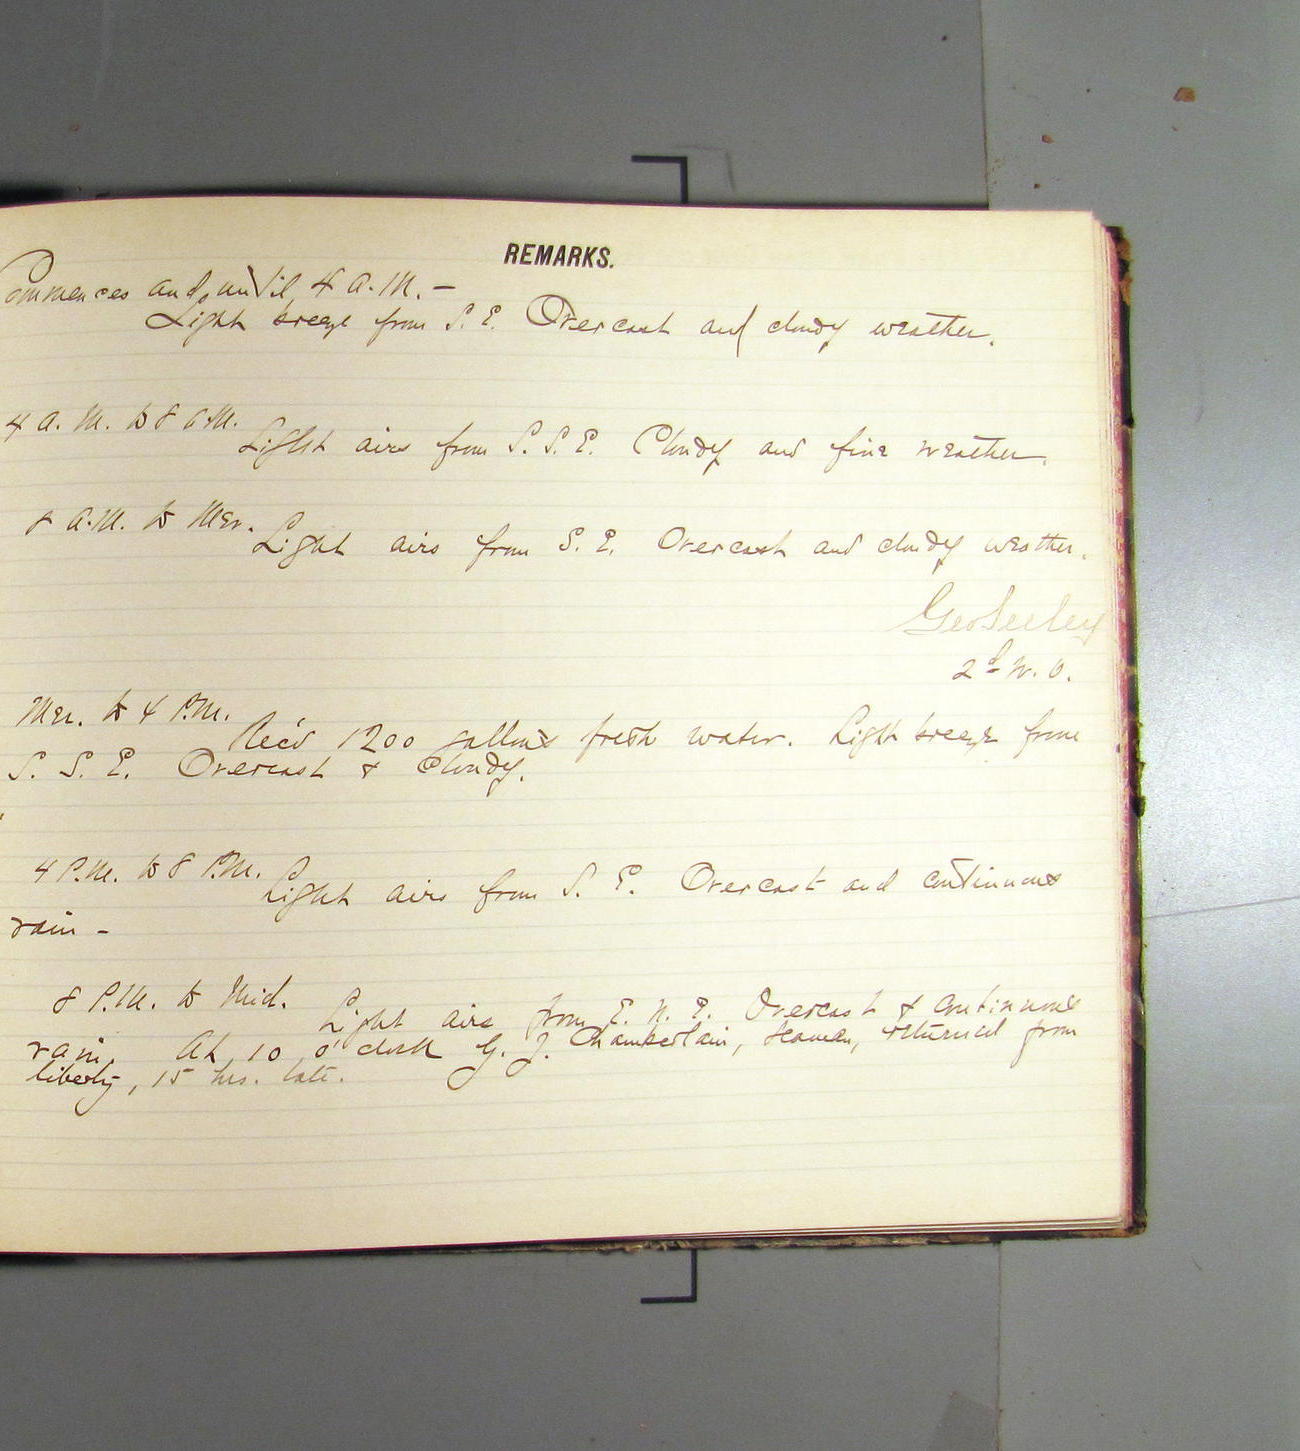 REMARKS.
Commences and until 4 A.M. —
Light breeze from S. E. Overcast and cloudy weather.
4 A. M. to 8 A.M.
Light airs from S. S. E. Cloudy and fine weather.
8 A.M. to Mer.
Light airs from S. E. Overcast and cloudy weather.
Geo Seeley
2d W. O.
Mer. to 4 P.M.
Rec'd 1200 gallons fresh water. Light breeze from
S. S. E. Overcast & Cloudy.
4 P.M. to 8 P.M.
Light airs from S. E. Overcast and continuous
rain —
8 P.M. to Mid.
Light airs from E. N. E. Overcast & continuous
rain. At 10 o'clock G. J. Chamberlain, Seaman, returned from
liberty, 15 hrs. late.